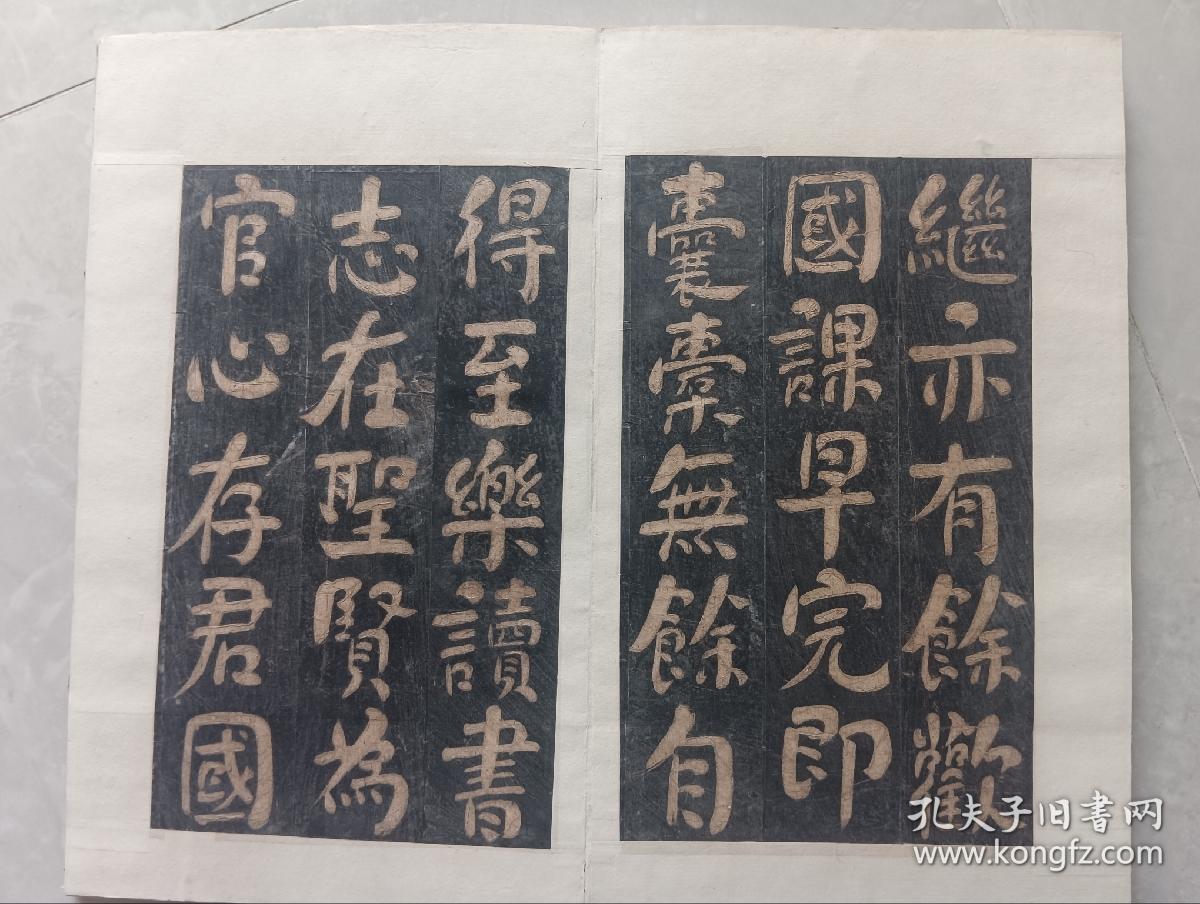 繼亦有餘歡
國課早完即
囊橐無餘自
得至樂讀書
志在聖賢為
官心存君國
孔夫子旧书网
www.kongfz.com